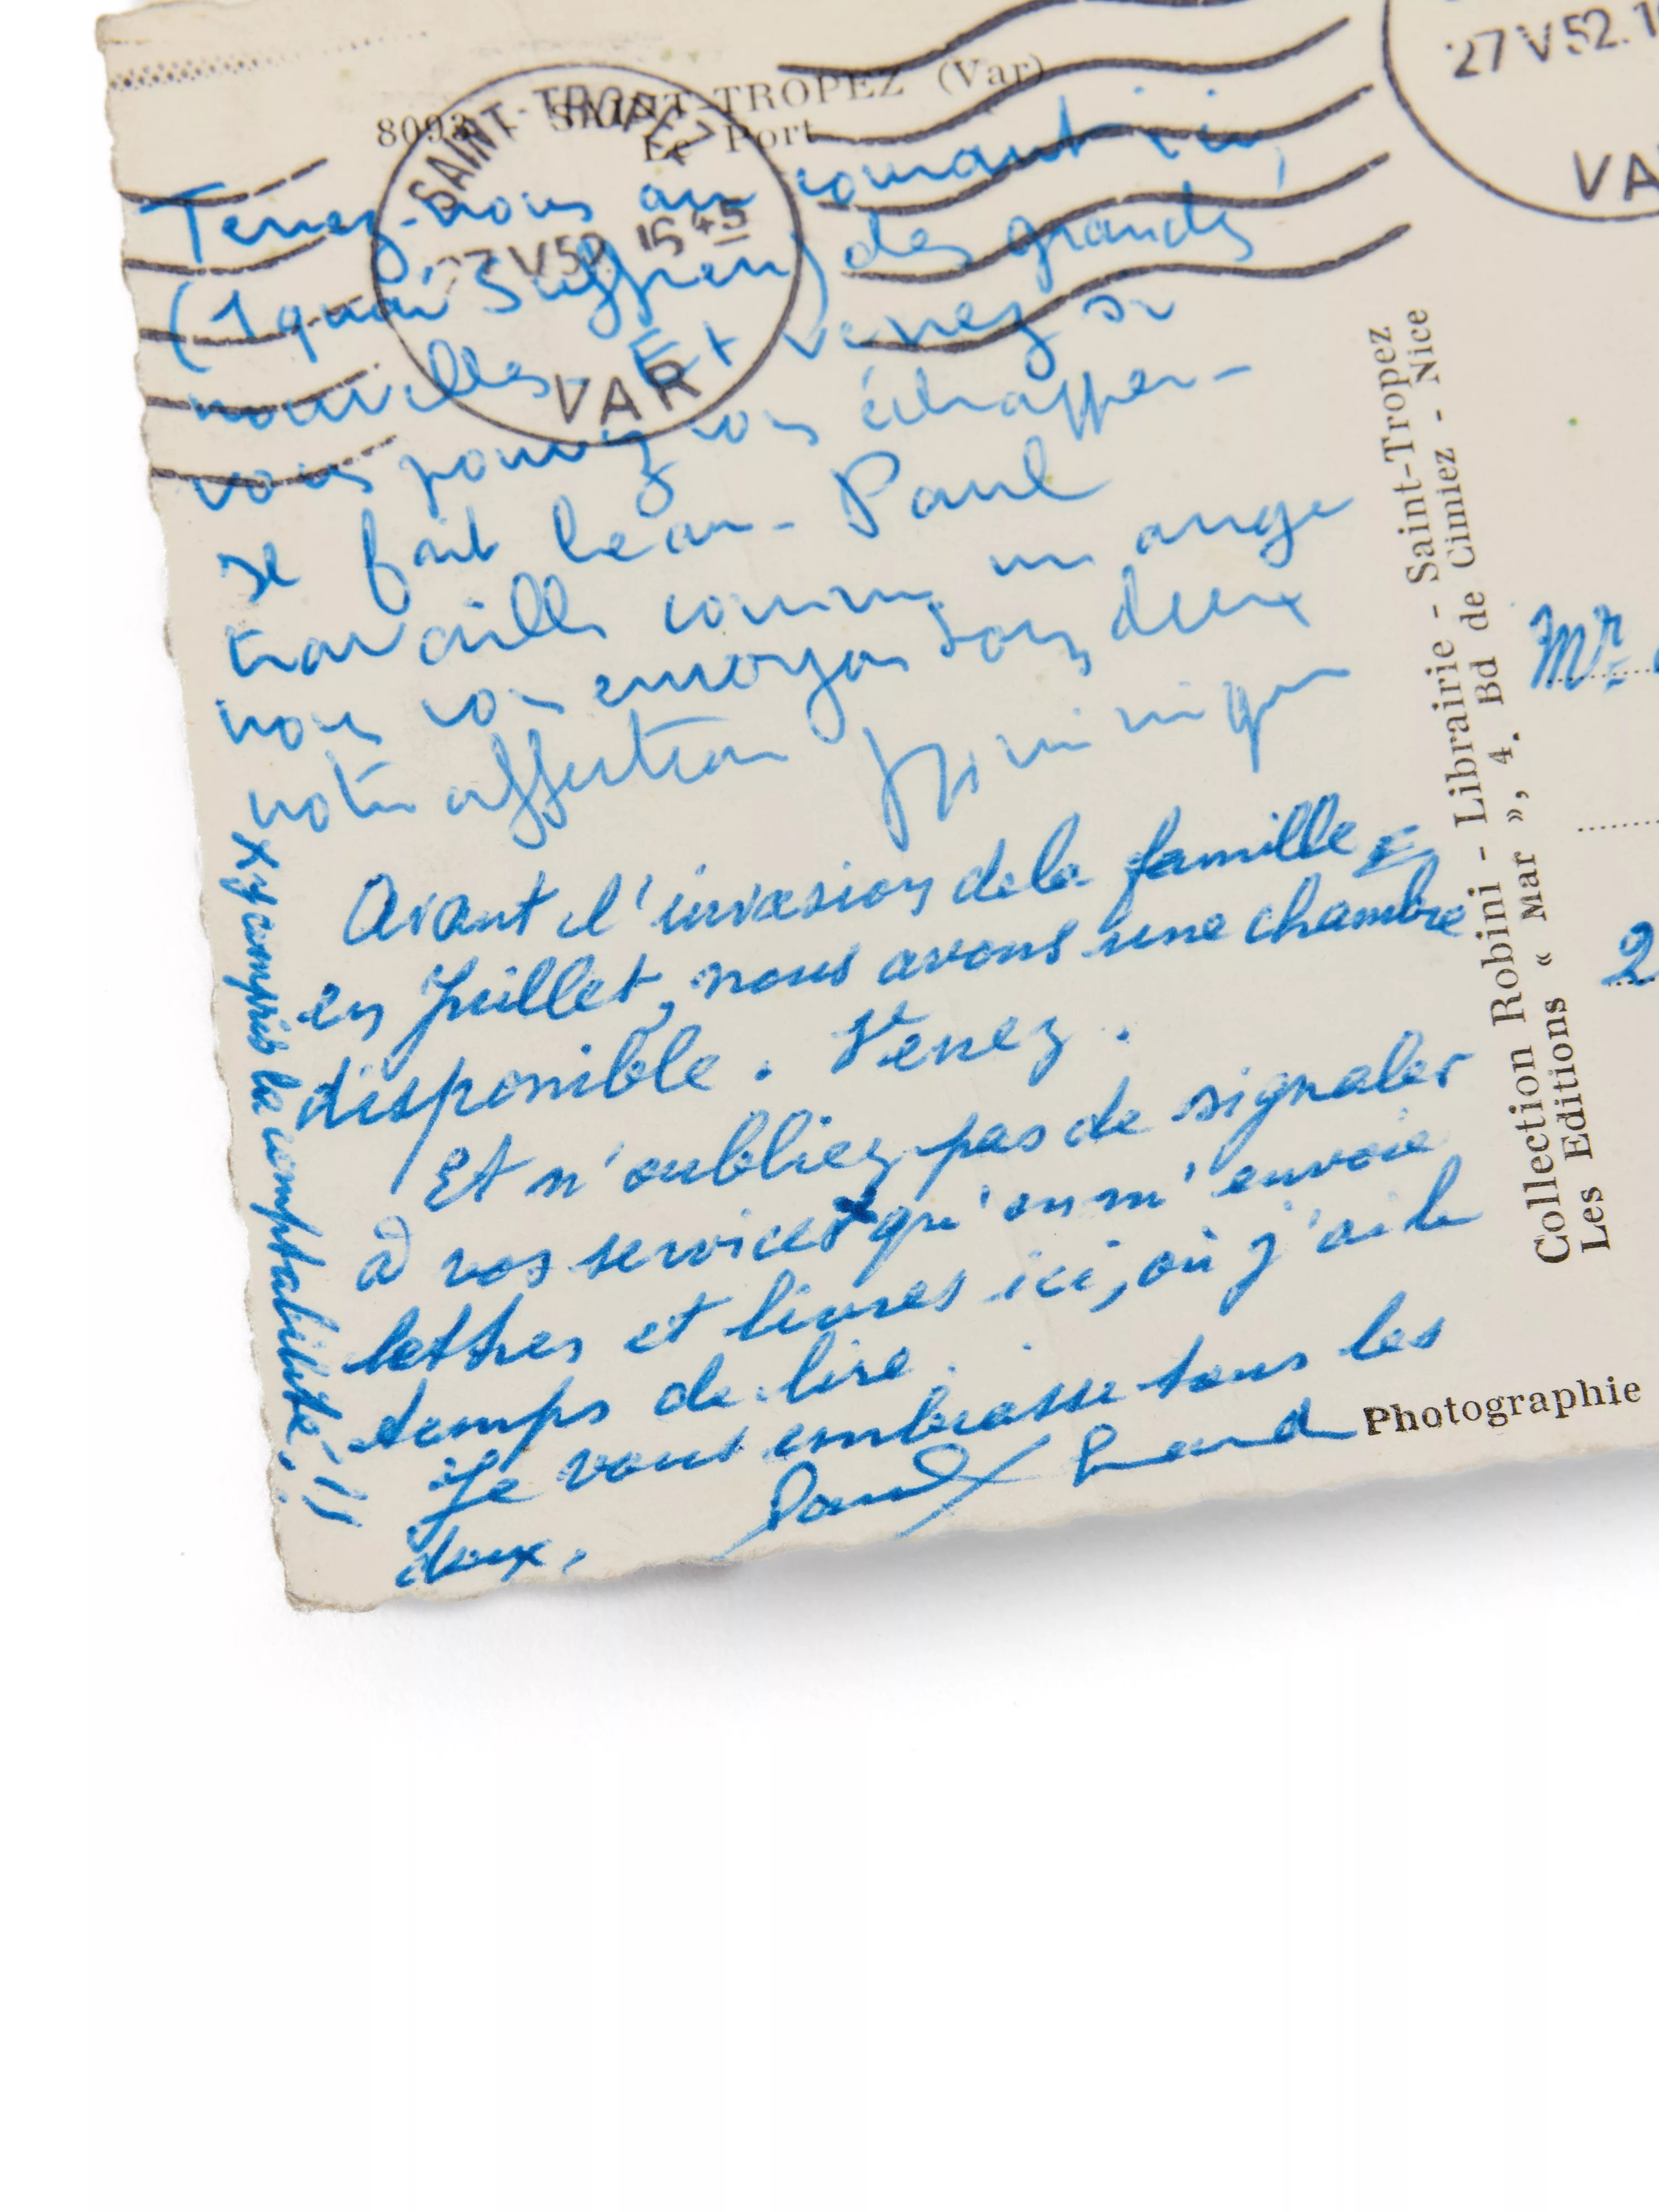 8093 SAINT-TROPEZ (Var)
Le Port
SAINT-TROPEZ
27 V 52 16 45
VAR
27 V 52. 1
VA
Tenez-nous au courant ici,
(1 quai Suffren) des grandes
nouvelles. Et venez si
vous pouvez vous échapper -
se fait beau - Paul
travaille comme un ange
nous vous envoyons tous deux
notre affection Dominique
Avant l'invasion de la famille
en Juillet, nous avons une chambre
disponible. Venez.
Et n'oubliez pas de signaler
à vos services qu'on m'envoie
lettres et livres ici, où j'ai le
temps de lire.
Je vous embrasse tous les
deux. Paul Eluard
X y compris la comptabilité!!
Collection Robini - Librairie - Saint-Tropez
Les Editions « Mar », 4, Bd de Cimiez - Nice
Photographie
Mr
2